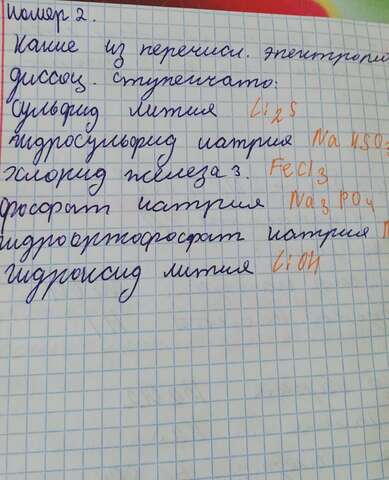 номер 2.
Какие из перечисл. электроли
диссоц. ступенчато:
сульфид лития Li₂S
гидросульфид натрия NaHSO₃
хлорид железа 3. FeCl₃
фосфат натрия Na₃PO₄
гидроортофосфат натрия N
гидроксид лития LiOH